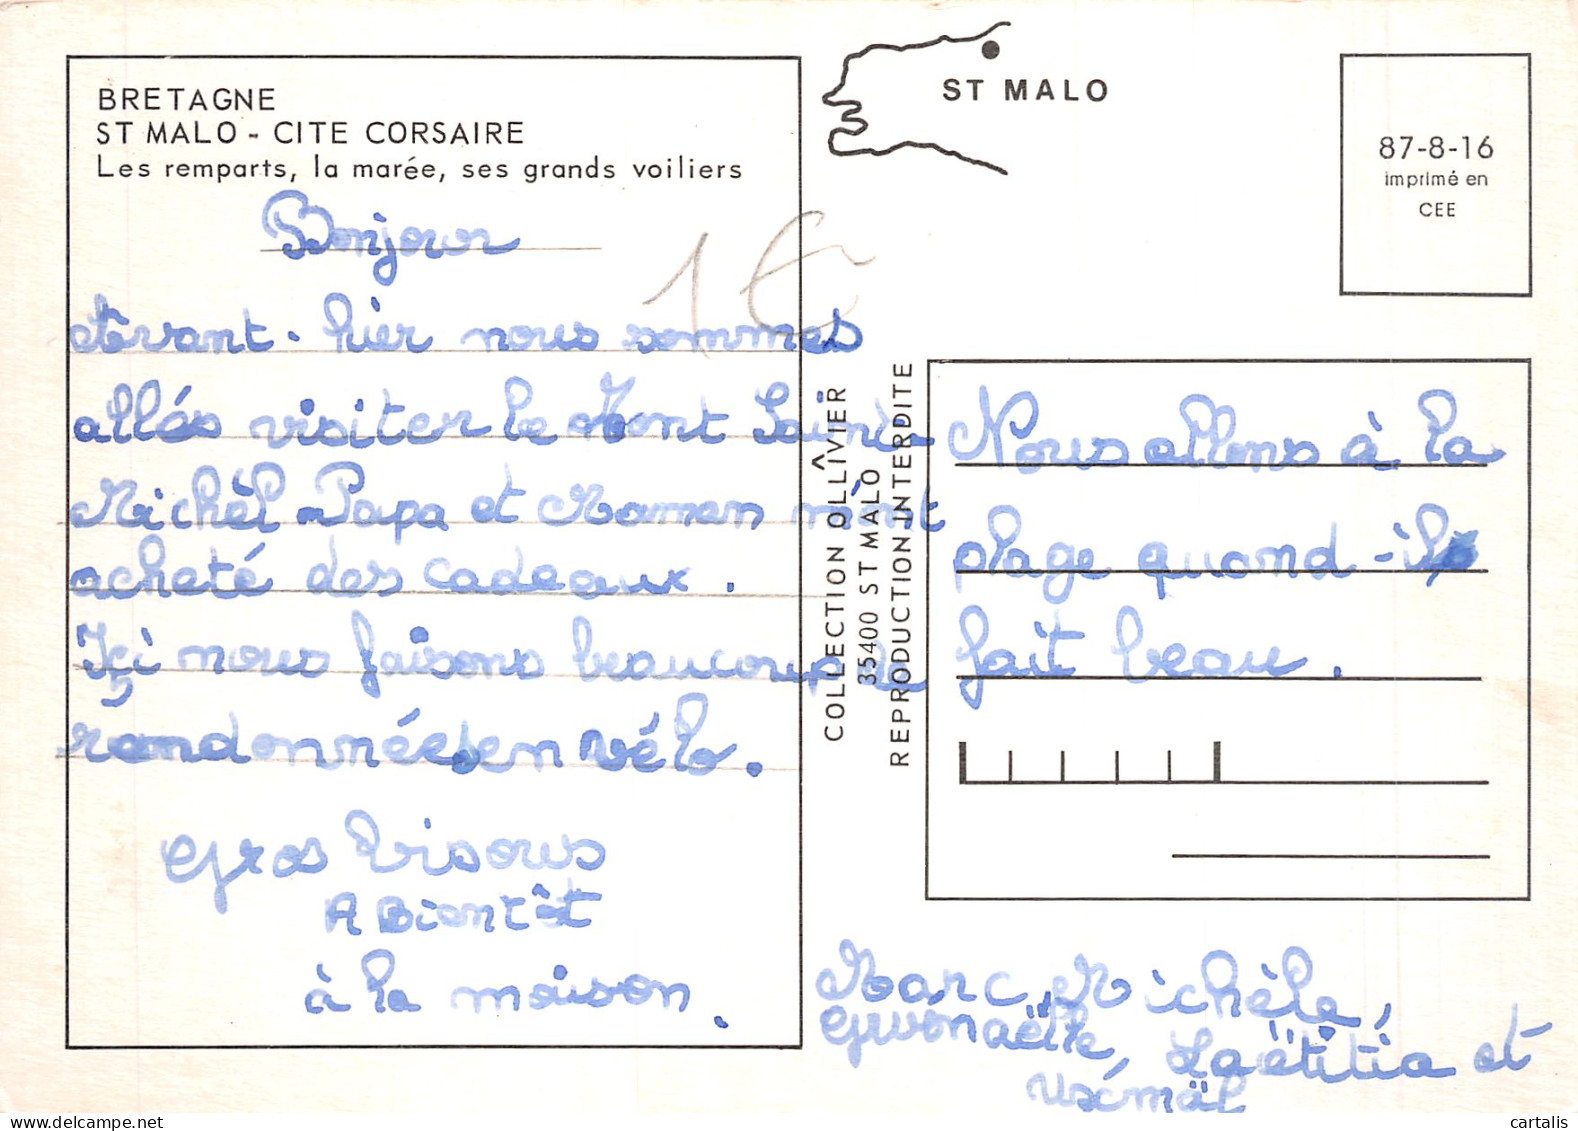 BRETAGNE
ST MALO - CITE CORSAIRE
Les remparts, la marée, ses grands voiliers
Bonjour
Avant-hier nous sommes
allés visiter le Mont Saint
Michèl. Papa et Maman m'ont
acheté des cadeaux.
Içi nous faisons beaucoup de
randonnées en vélo.
Gros bisous
A Bientôt
à la maison.
1€
COLLECTION OLLIVIER
35400 ST MALO
REPRODUCTION INTERDITE
ST MALO
87-8-16
imprimé en
CEE
Nous allons à la
plage quand-il
fait beau.
Marc, Michèle,
Gwénaëlle, Laëtitia et
cartalis